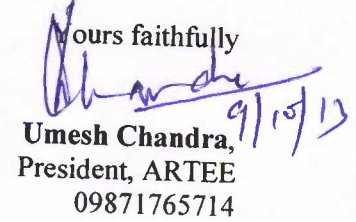 Yours faithfully
Chandra
9/10/13
Umesh Chandra,
President, ARTEE
09871765714